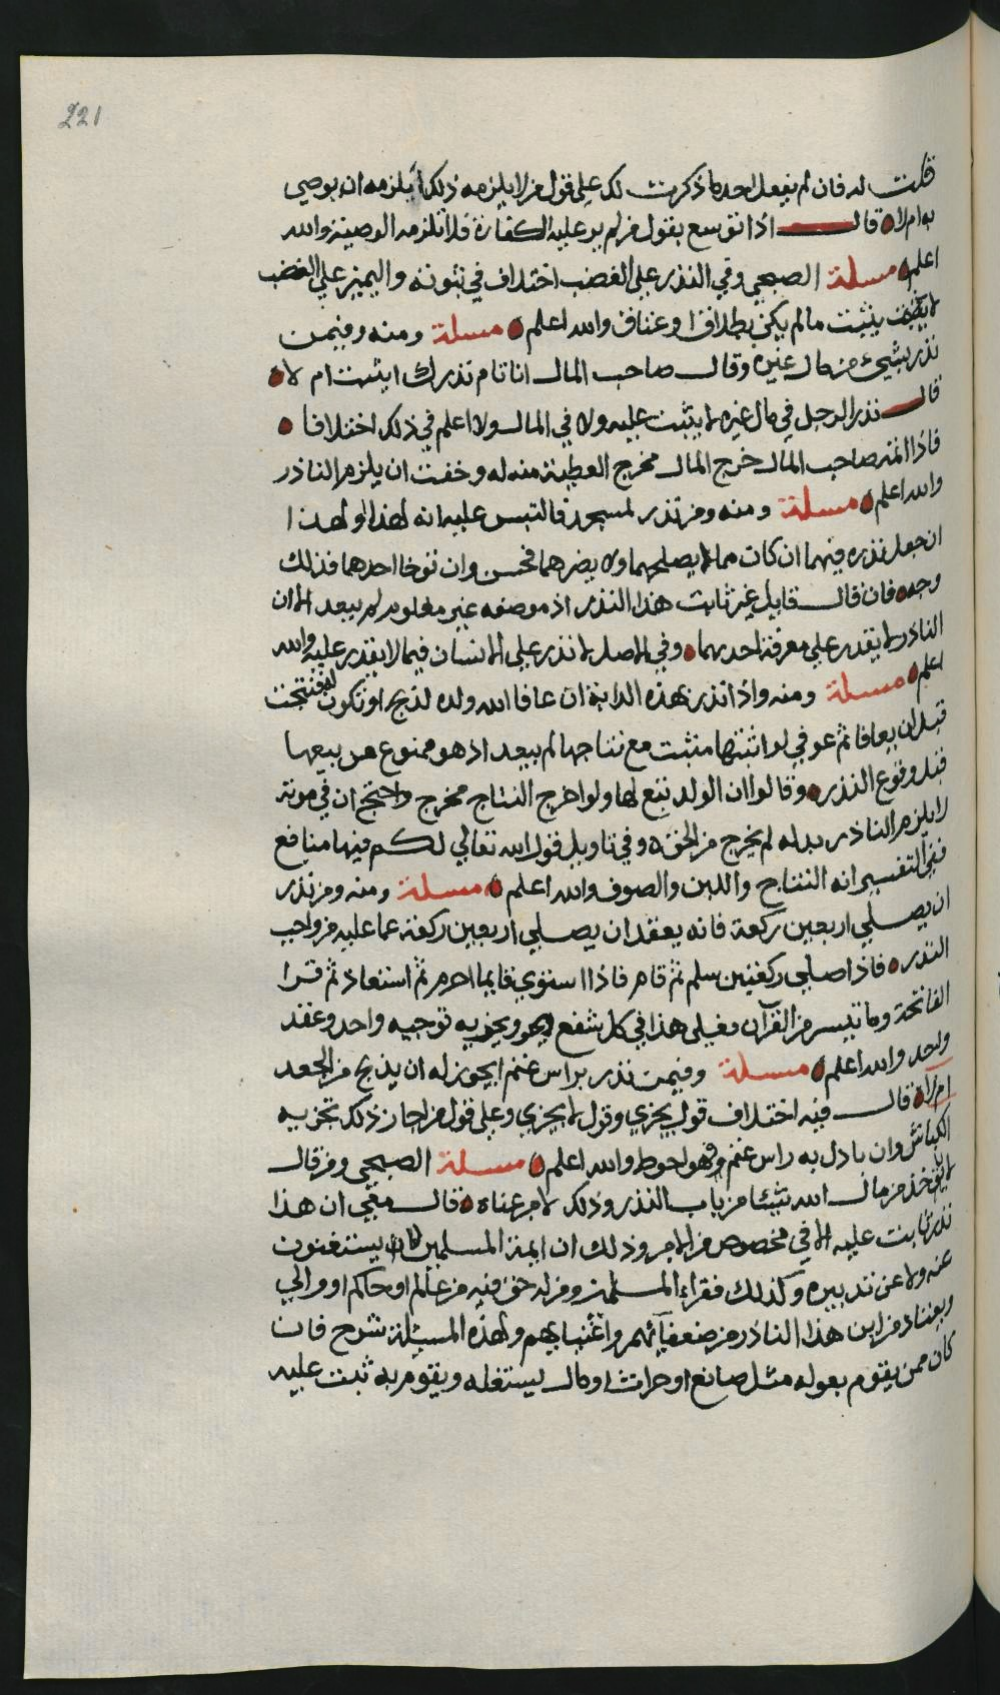 221
قلت له فان لم يفعل احد ما ذكرت لك على قول من لا يلزمه ذلك ايلزمه ان يوصي
به ام لا قال اذا توسع بقول من لم ير عليه الكفارة فلا تلزمه الوصية والله
اعلم مسئلة الصبحي وفي النذر على الغضب اختلاف في ثبوته واليمين على الغضب
يثبت ما لم يكن بطلاق او عتاق والله اعلم مسئلة ومنه وفيمن
نذر بشيء من مال غيره وقال صاحب المال انا تام نذرك ايثبت ام لا
قال نذر الرجل في مال غيره لا يثبت عليه ولا في المال ولا اعلم في ذلك اختلافا
فاذا اتمه صاحب المال خرج المال مخرج العطية منه له وخفت ان يلزم الناذر
والله اعلم مسئلة ومنه ومن نذر لمسجد فالتبس عليه انه لهذا او لهذا
ان جعل نذره فيهما ان كانت مما يصلحهما ولا يضرهما فحسن وان توخا احدهما فذلك
وجه فان قال قايل غير ثابت هذا النذر اذ موضعه غير معلوم لم يبعد الا ان
الناذر لا يقدر على معرفة احدهما وفي الاصل لا نذر على الانسان فيما لا يقدر عليه والله
اعلم مسئلة ومنه واذا نذر بهذه الدابة ان عافا الله ولده لذبح او تكون لفقتجت
قبل ان يعافا ثم عوفي لو اثبتها مثبت مع نتاجها لم يبعد اذ هو ممنوع من بيعها
قبل وقوع النذر وقالوا ان الولد تبع لها ولو اخرج النتاج مخرج واحتج ان في موته
لا يلزم الناذر بدله لم يخرج من الحق وفي تاويل قول الله تعالى لكم فيها منافع
ففي التفسير انه النتاج واللبن والصوف والله اعلم مسئلة ومنه ومن نذر
ان يصلي اربعين ركعة فانه يعقد ان يصلي اربعين ركعة عما عليه من واجب
النذر فاذا صلى ركعتين سلم ثم قام فاذا استوى قايما احرم ثم استعاذ ثم قرا
الفاتحة وما تيسر من القرآن فعلى هذا في كل شفع ويجزيه توجيه واحد وعقد
واحد والله اعلم مسئلة وفيمن نذر براس غنم ايجوز له ان يذبح من الجعد
ام لا قال فيه اختلاف قول يجزي وقول لا يجزي وعلى قول من اجاز ذلك تجزيه
الكباش وان بادل به راس غنم فهو احوط والله اعلم مسئلة الصبحي ومن قال
لا يؤخذ من مال الله شيئا من باب النذر وذلك لامر عناه قال معي ان هذا
نذر ثابت عليه الا في مخصوص من الامر وذلك ان ايمة المسلمين لا يستغنون
عنه ولا عن تدبيره وكذلك فقراء المسلمين ومن له حق فيه من عالم او حاكم او والي
ويعتاد من اين هذا الناذر من ضعفآئهم واغنيايهم ولهذه المسئلة شرح فان
كان ممن يقوم بعوله مثل صانع او حراث او مال يستغله ويقوم به ثبت عليه